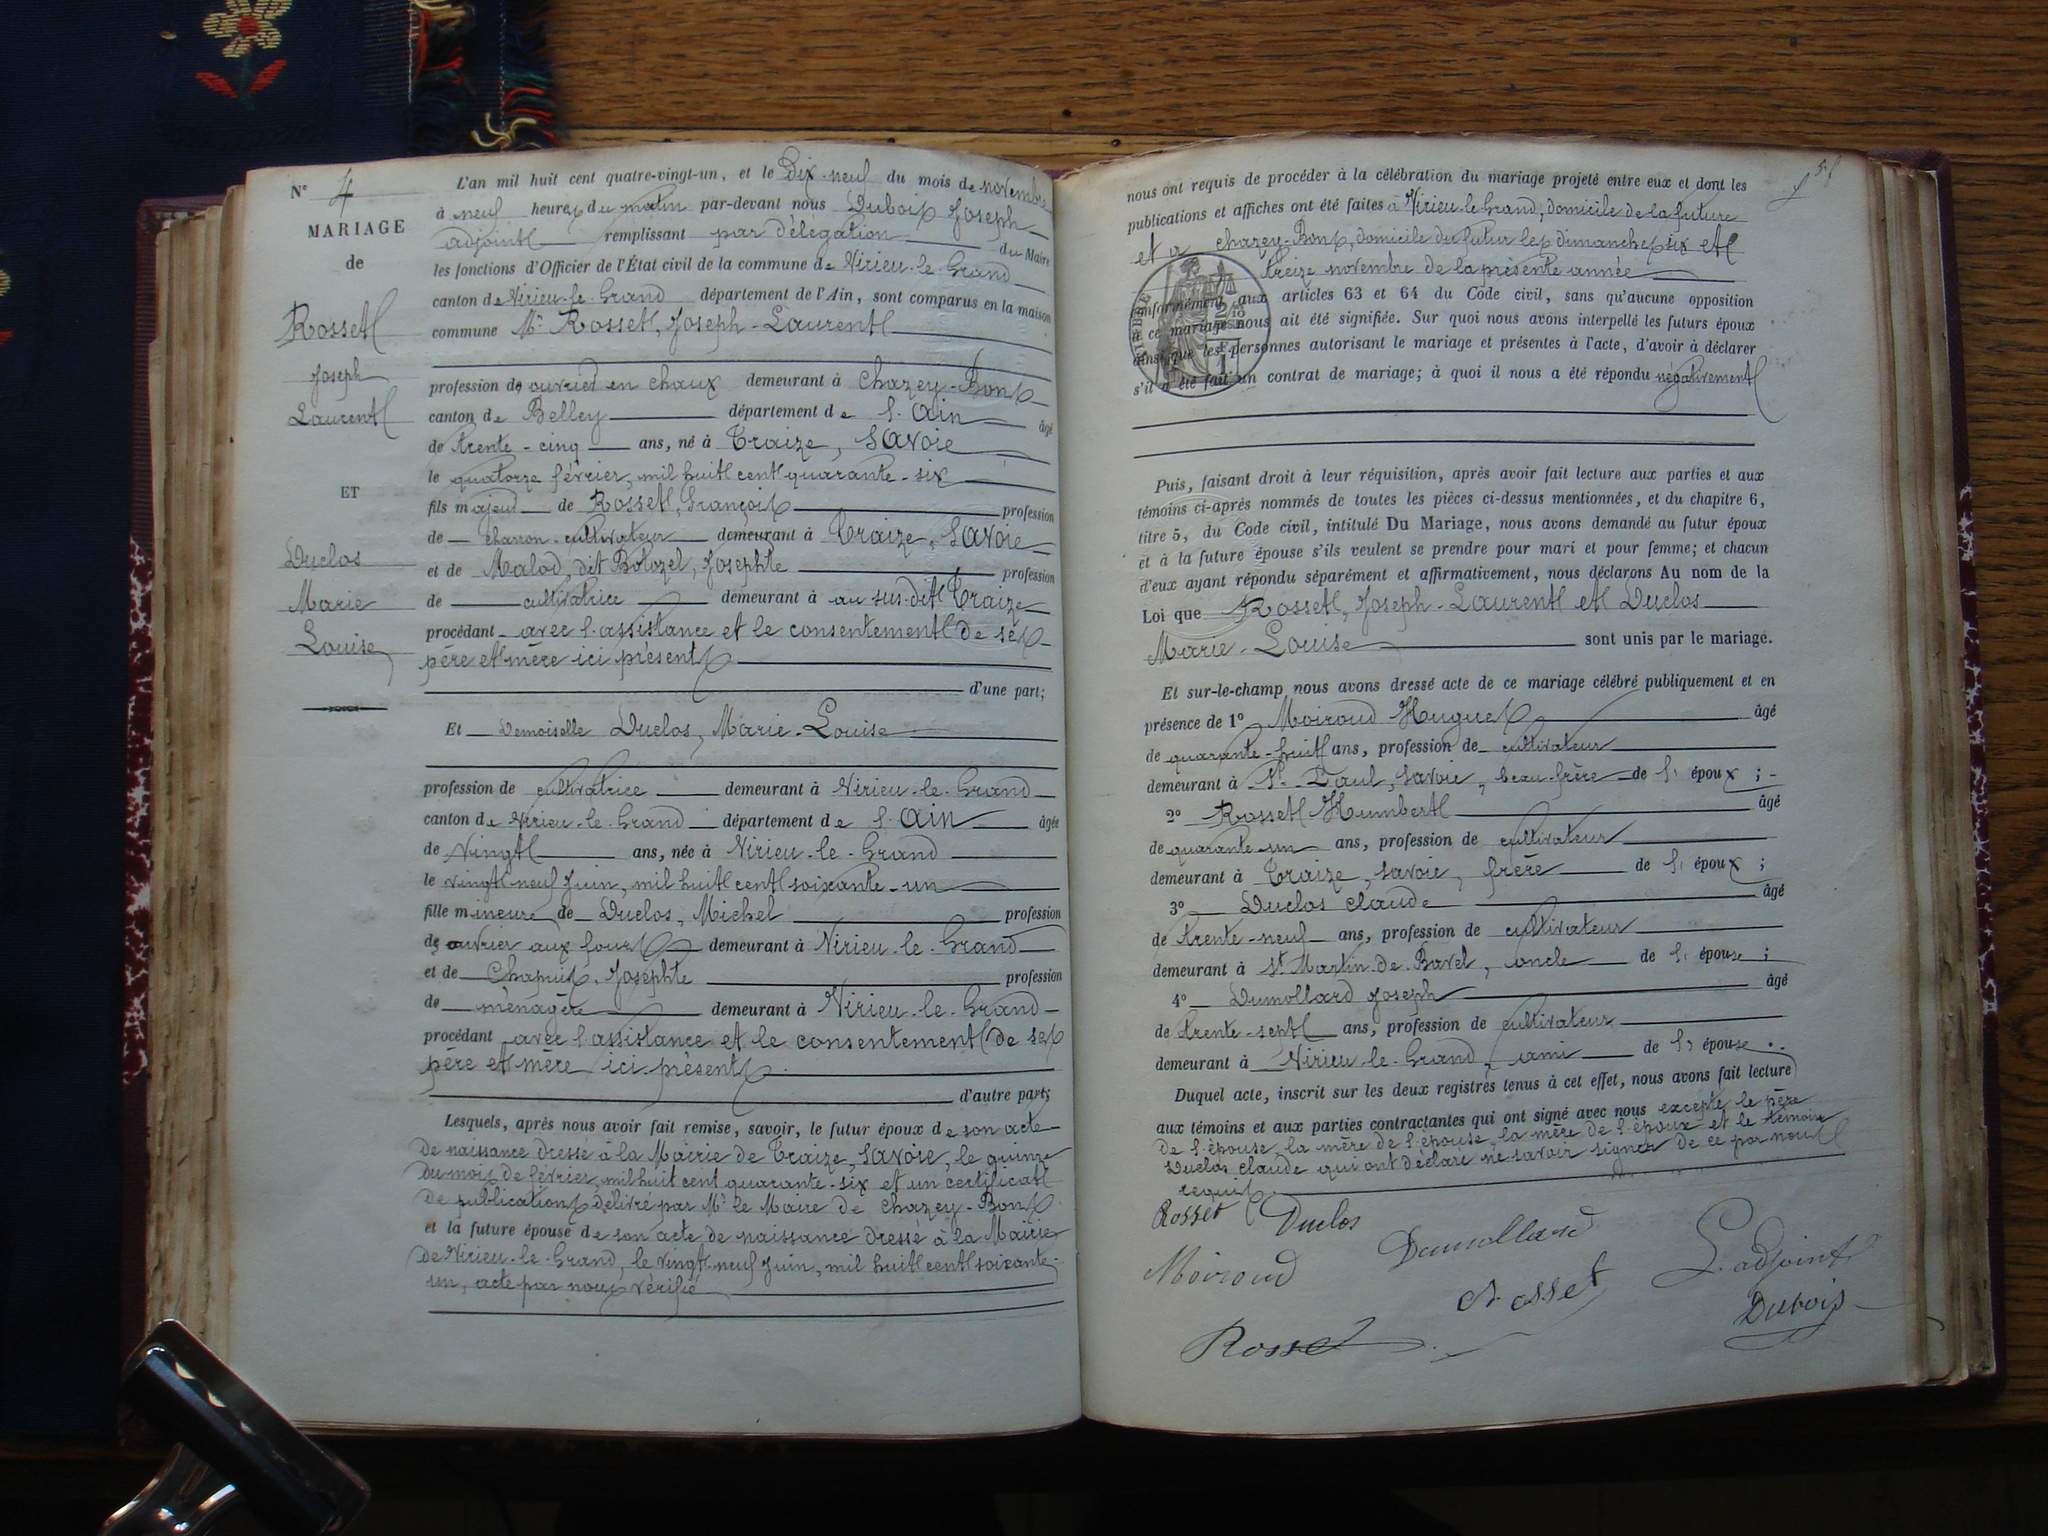 N° 4
MARIAGE
de
Rosset
Joseph
Laurent
ET
Duclos
Marie
Louise
L'an mil huit cent quatre-vingt-un, et le Dix-neuf du mois de novembre
à neuf heures du matin par-devant nous Dubois Joseph
adjoint remplissant par délégation du Maire
les fonctions d'Officier de l'État civil de la commune de Virieu-le-Grand
canton de Virieu-le-Grand département de l'Ain, sont comparus en la maison
commune Mr Rosset, Joseph-Laurent
profession de ouvrier en chaux demeurant à Chazey-Bons
canton de Belley département de l'Ain âgé
de trente-cinq ans, né à Traize, Savoie
le quatorze février, mil huit cent quarante-six
fils majeur de Rosset, François profession
de charron-cultivateur demeurant à Traize, Savoie
et de Malod, dit Bolozel, Josephte profession
de cultivatrice demeurant à au sus-dit Traize
procédant avec l'assistance et le consentement de ses
père et mère ici présents
d'une part;
Et Demoiselle Duclos, Marie-Louise
profession de cultivatrice demeurant à Virieu-le-Grand
canton de Virieu-le-Grand département de l'Ain âgée
de vingt ans, née à Virieu-le-Grand
le vingt-neuf Juin, mil huit cent soixante-un
fille mineure de Duclos, Michel profession
de ouvrier aux fours demeurant à Virieu-le-Grand
et de Chapuis, Josephte profession
de ménagère demeurant à Virieu-le-Grand
procédant avec l'assistance et le consentement de ses
père et mère ici présents
d'autre part;
Lesquels, après nous avoir fait remise, savoir, le futur époux de son acte
de naissance dressé à la Mairie de Traize, Savoie, le quinze
du mois de février, mil huit cent quarante-six et un certificat
de publications délivré par Mr le Maire de Chazey-Bons
et la future épouse de son acte de naissance dressé à la Mairie
de Virieu-le-Grand, le vingt-neuf Juin, mil huit cent soixante-
un, acte par nous vérifié
nous ont requis de procéder à la célébration du mariage projeté entre eux et dont les
publications et affiches ont été faites à Virieu-le-Grand, domicile de la future
et à Chazey-Bons, domicile du futur les dimanches six et
treize novembre de la présente année
conformément aux articles 63 et 64 du Code civil, sans qu'aucune opposition
à ce mariage nous ait été signifiée. Sur quoi nous avons interpellé les futurs époux
ainsi que les personnes autorisant le mariage et présentes à l'acte, d'avoir à déclarer
s'il a été fait un contrat de mariage; à quoi il nous a été répondu négativement
Puis, faisant droit à leur réquisition, après avoir fait lecture aux parties et aux
témoins ci-après nommés de toutes les pièces ci-dessus mentionnées, et du chapitre 6,
titre 5, du Code civil, intitulé Du Mariage, nous avons demandé au futur époux
et à la future épouse s'ils veulent se prendre pour mari et pour femme; et chacun
d'eux ayant répondu séparément et affirmativement, nous déclarons Au nom de la
Loi que Rosset, Joseph-Laurent et Duclos
Marie-Louise sont unis par le mariage.
Et sur-le-champ nous avons dressé acte de ce mariage célébré publiquement et en
présence de 1° Moiroud Hugues âgé
de quarante-huit ans, profession de cultivateur
demeurant à St-Paul, Savoie, beau-frère de l'époux;
2° Rosset Humbert âgé
de quarante-un ans, profession de cultivateur
demeurant à Traize, Savoie, frère de l'époux;
3° Duclos Claude âgé
de trente-neuf ans, profession de cultivateur
demeurant à St Martin-de-Bavel, oncle de l'épouse;
4° Dumollard Joseph âgé
de trente-sept ans, profession de cultivateur
demeurant à Virieu-le-Grand, ami de l'épouse.
Duquel acte, inscrit sur les deux registres tenus à cet effet, nous avons fait lecture
aux témoins et aux parties contractantes qui ont signé avec nous excepté le père
de l'épouse, la mère de l'épouse, la mère de l'époux et le témoin
Duclos Claude qui ont déclaré ne savoir signer de ce par nous
requis
Rosset Duclos
Dumollard
Moiroud
Rosset
L'adjoint
Dubois
Rosset